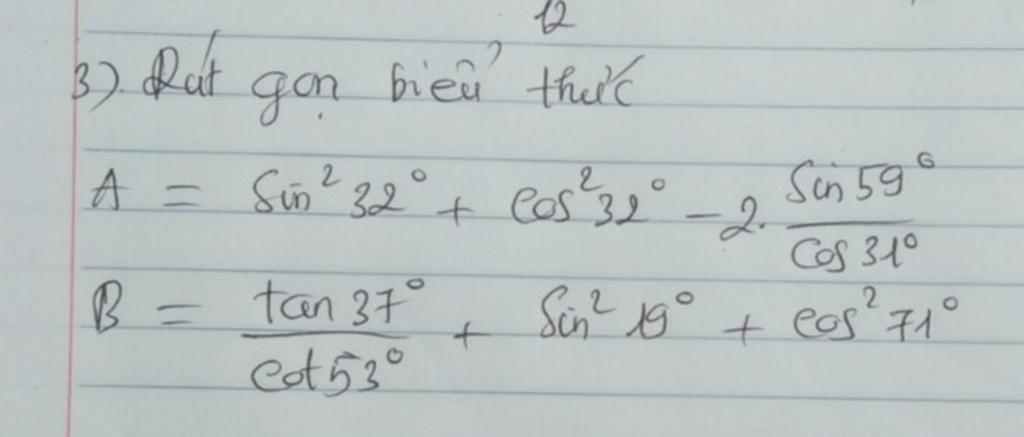 12
3). Rút gọn biểu thức
A = Sin² 32° + cos² 32° - 2. Sin 59° / Cos 31°
B = tan 37° / cot 53° + Sin² 19° + cos² 71°